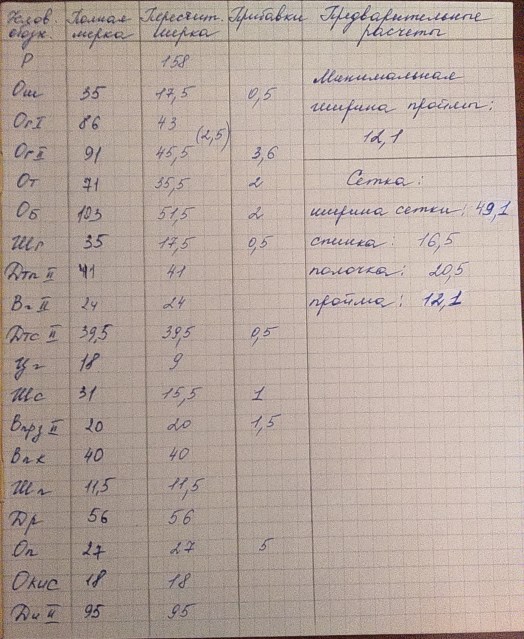 Услов. обозн. Полная мерка Пересчит. мерка Прибавки Предварительные расчеты
Р 158
Ош 35 17,5 0,5
ОгI 86 43
(2,5)
ОгII 91 45,5 3,6
От 71 35,5 2
Об 103 51,5 2
Шг 35 17,5 0,5
Дтп II 41 41
Вг II 24 24
Дтс II 39,5 39,5 0,5
Цг 18 9
Шс 31 15,5 1
Впрз II 20 20 1,5
Впк 40 40
Шп 11,5 11,5
Др 56 56
Оп 27 27 5
Окис 18 18
Ди II 95 95
Минимальная
ширина проймы:
12,1
Сетка:
ширина сетки: 49,1
спинка: 16,5
полочка: 20,5
пройма: 12,1